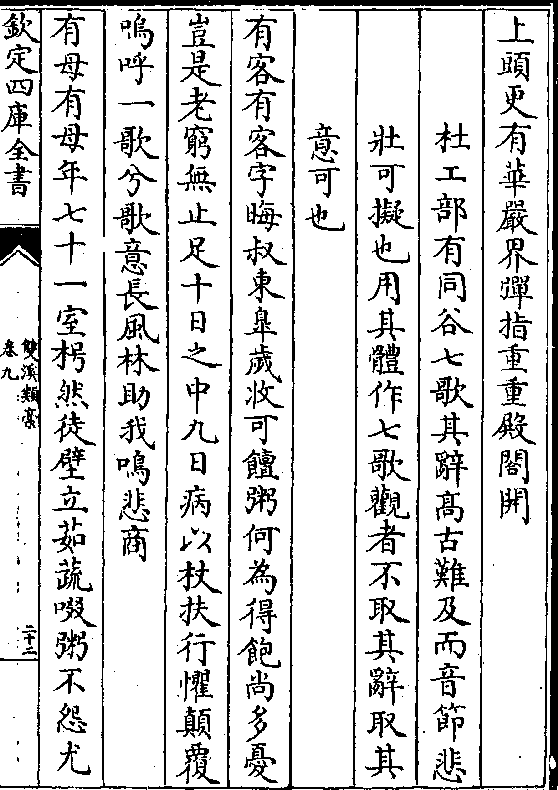 上頭更有華嚴界彈指重重殿閣開
杜工部有同谷七歌其辭高古難及而音節悲
壯可擬也用其體作七歌觀者不取其辭取其
意可也
有客有客字晦叔東臯歲收可饘粥何為得飽尚多憂
豈是老窮無止足十日之中九日病以杖扶行懼顛覆
嗚呼一歌兮歌意長風林助我鳴悲商
有母有母年七十一室枵然徒壁立茹蔬啜粥不怨尤
欽定四庫全書
雙溪類藁
卷九
二十二